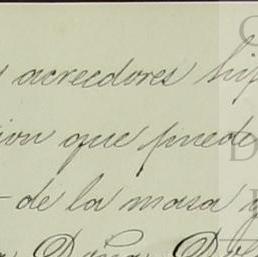 acreedores hip
ion que puede
de la masa y
Doña Dol